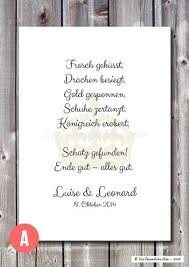 Frosch geküsst,
Drachen besiegt,
Gold gesponnen,
Schuhe zertanzt,
Königreich erobert,
Schatz gefunden!
Ende gut – alles gut.
Luise & Leonard
18. Oktober 2014
A